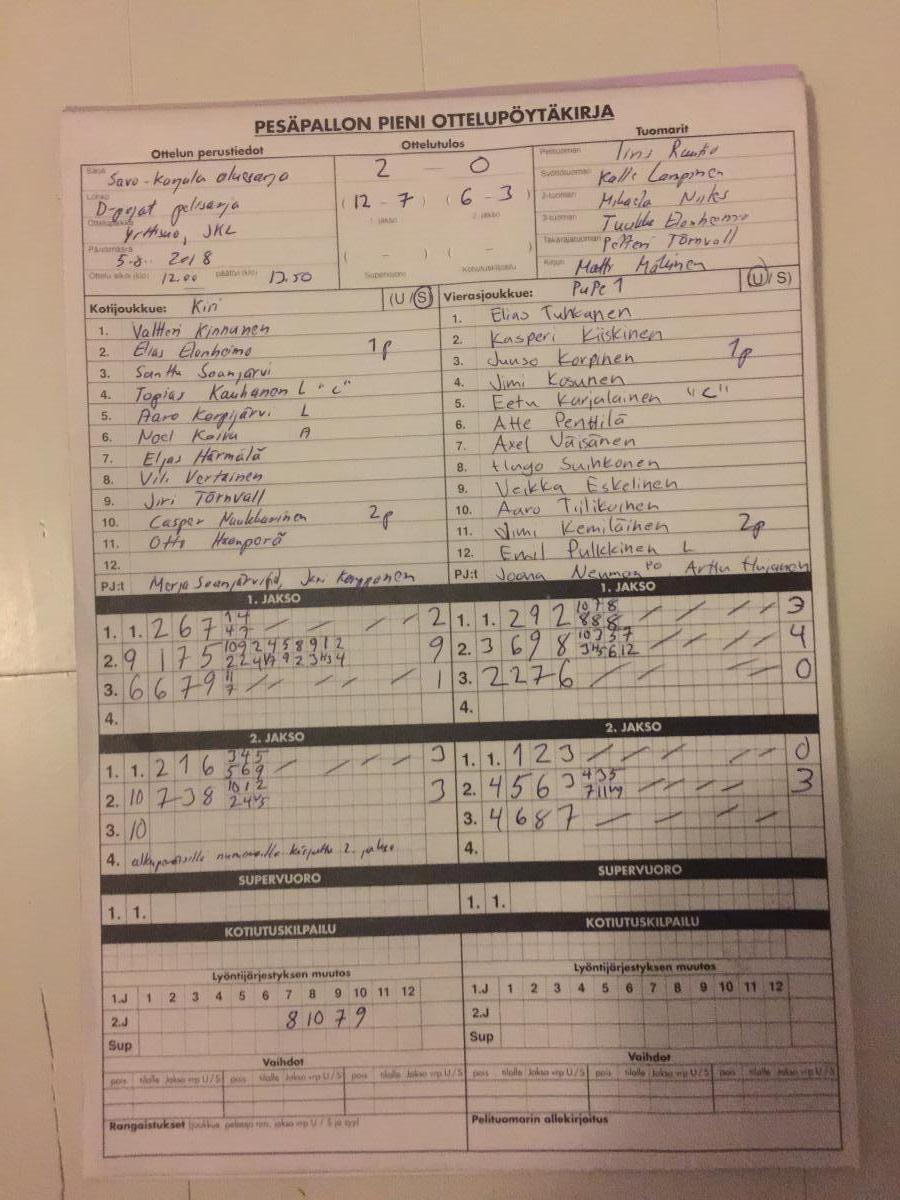 PESÄPALLON PIENI OTTELUPÖYTÄKIRJA
Ottelun perustiedot
Ottelutulos
Tuomarit
Sarja Savo-Karjala aluesarja
Lohko D-pojat pelisarja
Ottelupaikka Yrttisuo, JKL
Päivämäärä 2018
Ottelu alkoi (klo) 12.00 päättyi (klo) 13.50
2 — 0
( 12 - 7 ) ( 6 - 3 )
1. jakso 2. jakso
( - ) ( - )
Supervuoro Kotiutuskilpailu
Pelituomari
Syöttötuomari Kalle Lampinen
2-tuomari
3-tuomari Tuukka Elonheimo
Takarajatuomari Petteri Törnvall
Kirjuri Matti
Kotijoukkue: Kiri (U / S)
1. Valtteri Kinnunen
2. Elias Elonheimo 1p
3. Santtu Soanjärvi
4. Topias Kauhanen L "c"
5. Aaro Korpijärvi L
6. Noel Koivu A
7. Eljas Härmälä
8. Vili Vertainen
9. Jiri Törnvall
10. Casper 2p
11. Otto Haanperä
12.
PJ:t Merja
Vierasjoukkue: PuPe 1 (U / S)
1. Elias Tuhkanen
2. Kasperi Kiiskinen
3. Juuso Korpinen 1p
4. Jimi Kosunen
5. Eetu Karjalainen "c"
6. Atte Penttilä
7. Axel Väisänen
8. Hugo Suihkonen
9. Veikka Eskelinen
10. Aaro Tiilikainen
11. Jimi Kemiläinen 2p
12. Emil Pulkkinen L
PJ:t Joona
1. JAKSO
1. 1. 2 6 7 2
2. 9 1 7 5 9
3. 6 6 7 9 1
4.
1. JAKSO
1. 1. 2 9 2 10 7 8 3
8 8 8
2. 3 6 9 8 4
3. 2 2 7 6 0
4.
2. JAKSO
1. 1. 2 1 6 3 4 5 3
5 6 9
2. 10 7 3 8 10 1 2 3
3. 10
4. 2. jakso
2. JAKSO
1. 1. 1 2 3 0
2. 4 5 6 3 4 3 5 3
3. 4 6 8 7
4.
SUPERVUORO
1. 1.
SUPERVUORO
1. 1.
KOTIUTUSKILPAILU
KOTIUTUSKILPAILU
Lyöntijärjestyksen muutos
1.J 1 2 3 4 5 6 7 8 9 10 11 12
2.J 8 10 7 9
Sup
Lyöntijärjestyksen muutos
1.J 1 2 3 4 5 6 7 8 9 10 11 12
2.J
Sup
Vaihdot
pois tilalle Jakso vrp U / S pois tilalle Jakso vrp U / S pois tilalle Jakso vrp U / S
Vaihdot
pois tilalle Jakso vrp U / S pois tilalle Jakso vrp U / S pois tilalle Jakso vrp U / S
Rangaistukset (joukkue, pelaaja nro, jakso vrp U / S ja syy)
Pelituomarin allekirjoitus